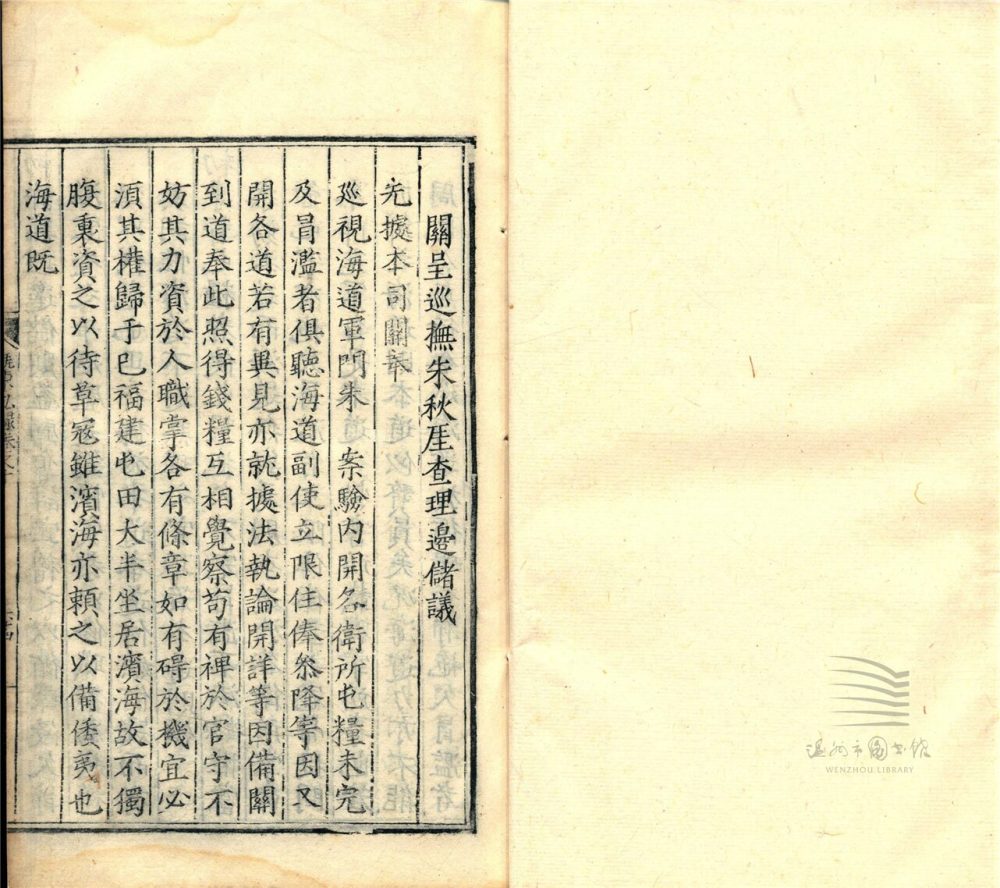 關呈巡撫朱秋厓查理邊儲議
先據本司關奉
巡視海道軍門朱 案驗內開各衛所屯糧未完
及冐濫者俱聽海道副使立限住俸叅降等因又
開各道若有異見亦就據法執論開詳等因備關
到道奉此照得錢糧互相覺察苟有裨於官守不
妨其力資於人職掌各有條章如有碍於機宜必
湏其權歸于巳福建屯田大半坐居濱海故不獨
腹裏資之以待草冦雖濱海亦頼之以備倭夷也
海道既
温州市图书馆
WENZHOU LIBRARY